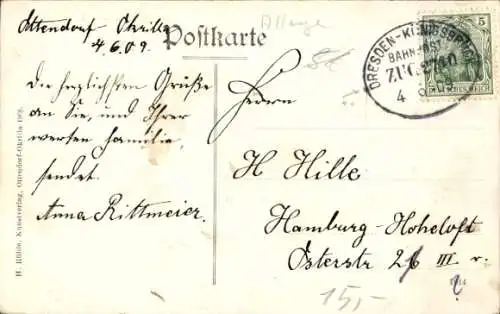 Ottendorf Okrilla
4.6.09.
Postkarte
Die herzlichsten Grüße
an Sie, und Ihrer
werten Familie,
sendet
Anna Rittmeier.
Herrn
H Hille
Hamburg-Hoheloft
Osterstr 26 III r.
15,-
DRESDEN-KÖNIGSBRÜCK
BAHNPOST
ZUG
4
5
DEUTSCHES REICH
H. Rühle, Kunstverlag, Ottendorf-Okrilla